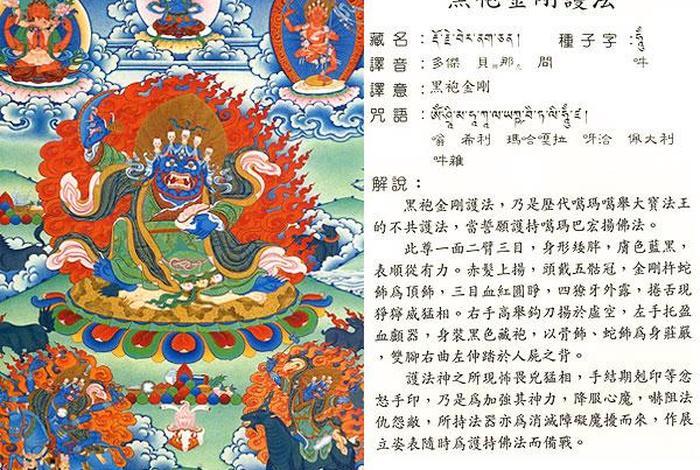 黑袍金剛護法
藏名：རྡོ་རྗེ་བེར་ནག་ཅན། 種子字：ཧཱུྃ
譯音：多傑 貝 那 間 吽
譯意：黑袍金剛
咒語：
嗡 希利 瑪哈嘎拉 呀洽 佩大利
吽雜
解說：
黑袍金剛護法，乃是歷代噶瑪噶舉大寶法王
的不共護法，當誓願護持噶瑪巴宏揚佛法。
此尊一面二臂三目，身形矮胖，膚色藍黑，
表順從有力。赤髮上揚，頭戴五骷冠，金剛杵蛇
飾為頂飾，三目血紅圓睜，四獠牙外露，捲舌現
猙獰威猛相。右手高舉鉤刀揚於虛空，左手托盈
血顱器，身裝黑色藏袍，以骨飾、蛇飾爲身莊嚴
，雙腳右曲左伸踏於人屍之背。
護法神之所現怖畏兇猛相，手結期剋印等忿
怒手印，乃是爲加強其神力，降服心魔，嚇阻法
仇怨敵，所持法器亦爲消滅障礙魔擾而來，作展
立姿表隨時爲護持佛法而備戰。